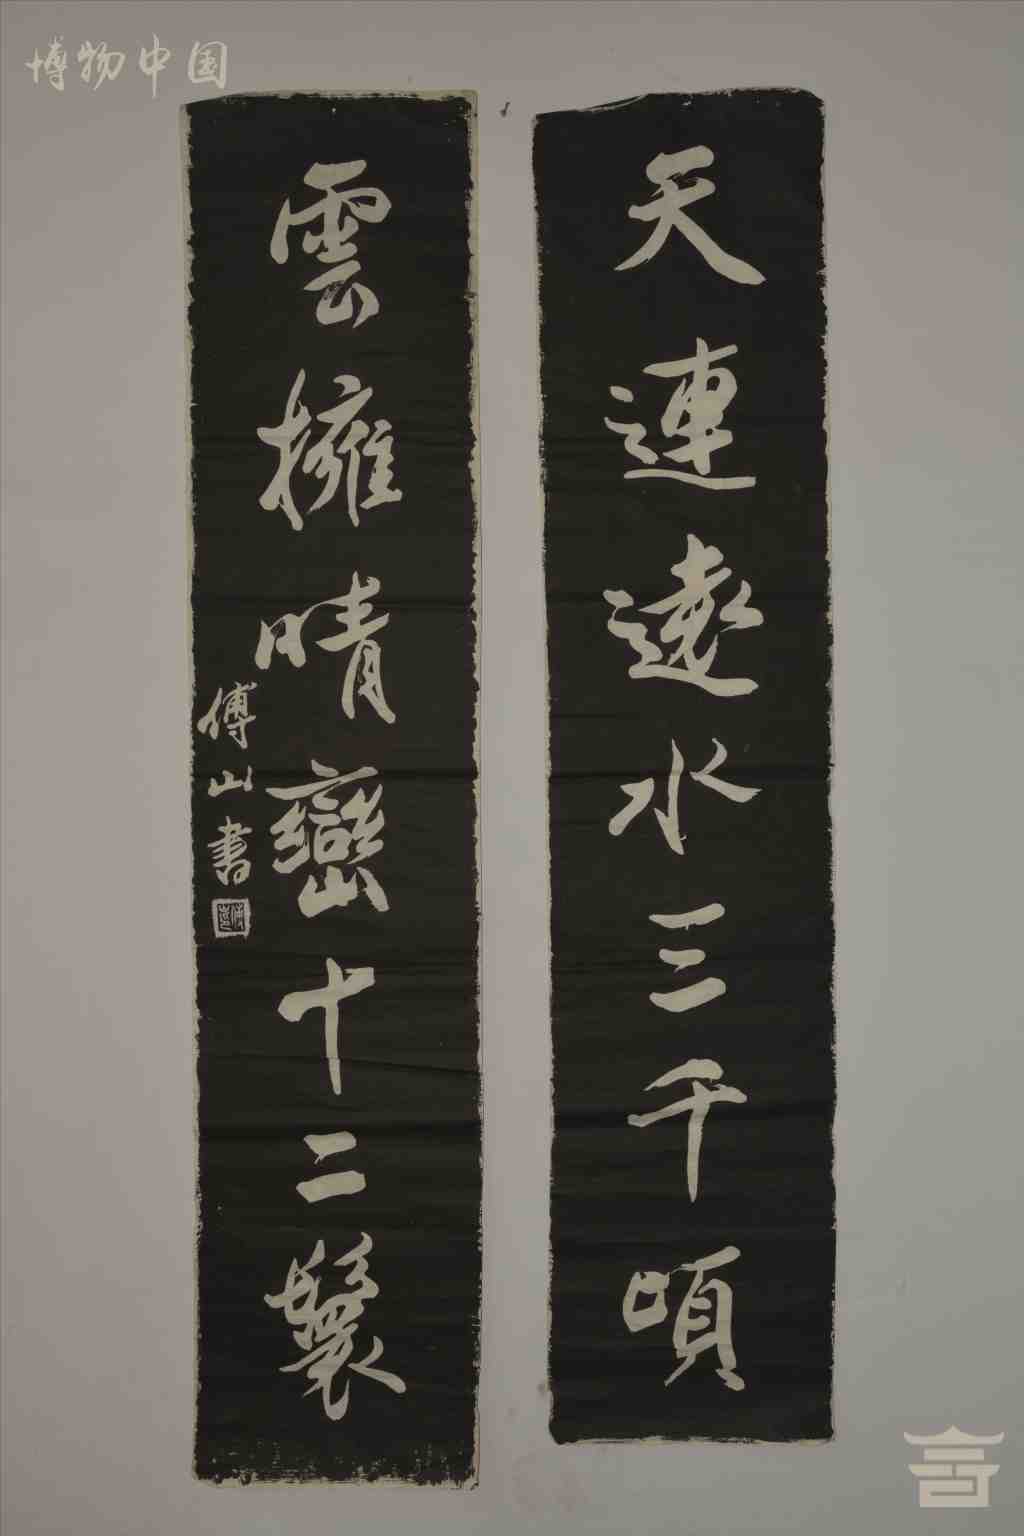 博物中国
天連遠水三千頃
雲擁晴巒十二鬟
傅山書